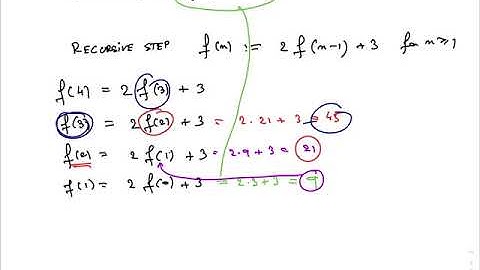 RECURSIVE STEP f(n) := 2 f(n-1) + 3 for n ≥ 1
f(4) = 2 f(3) + 3
f(3) = 2 f(2) + 3 = 2·21 + 3 = 45
f(2) = 2 f(1) + 3 = 2·9 + 3 = 21
f(1) = 2 f(0) + 3 = 2·3 + 3 = 9